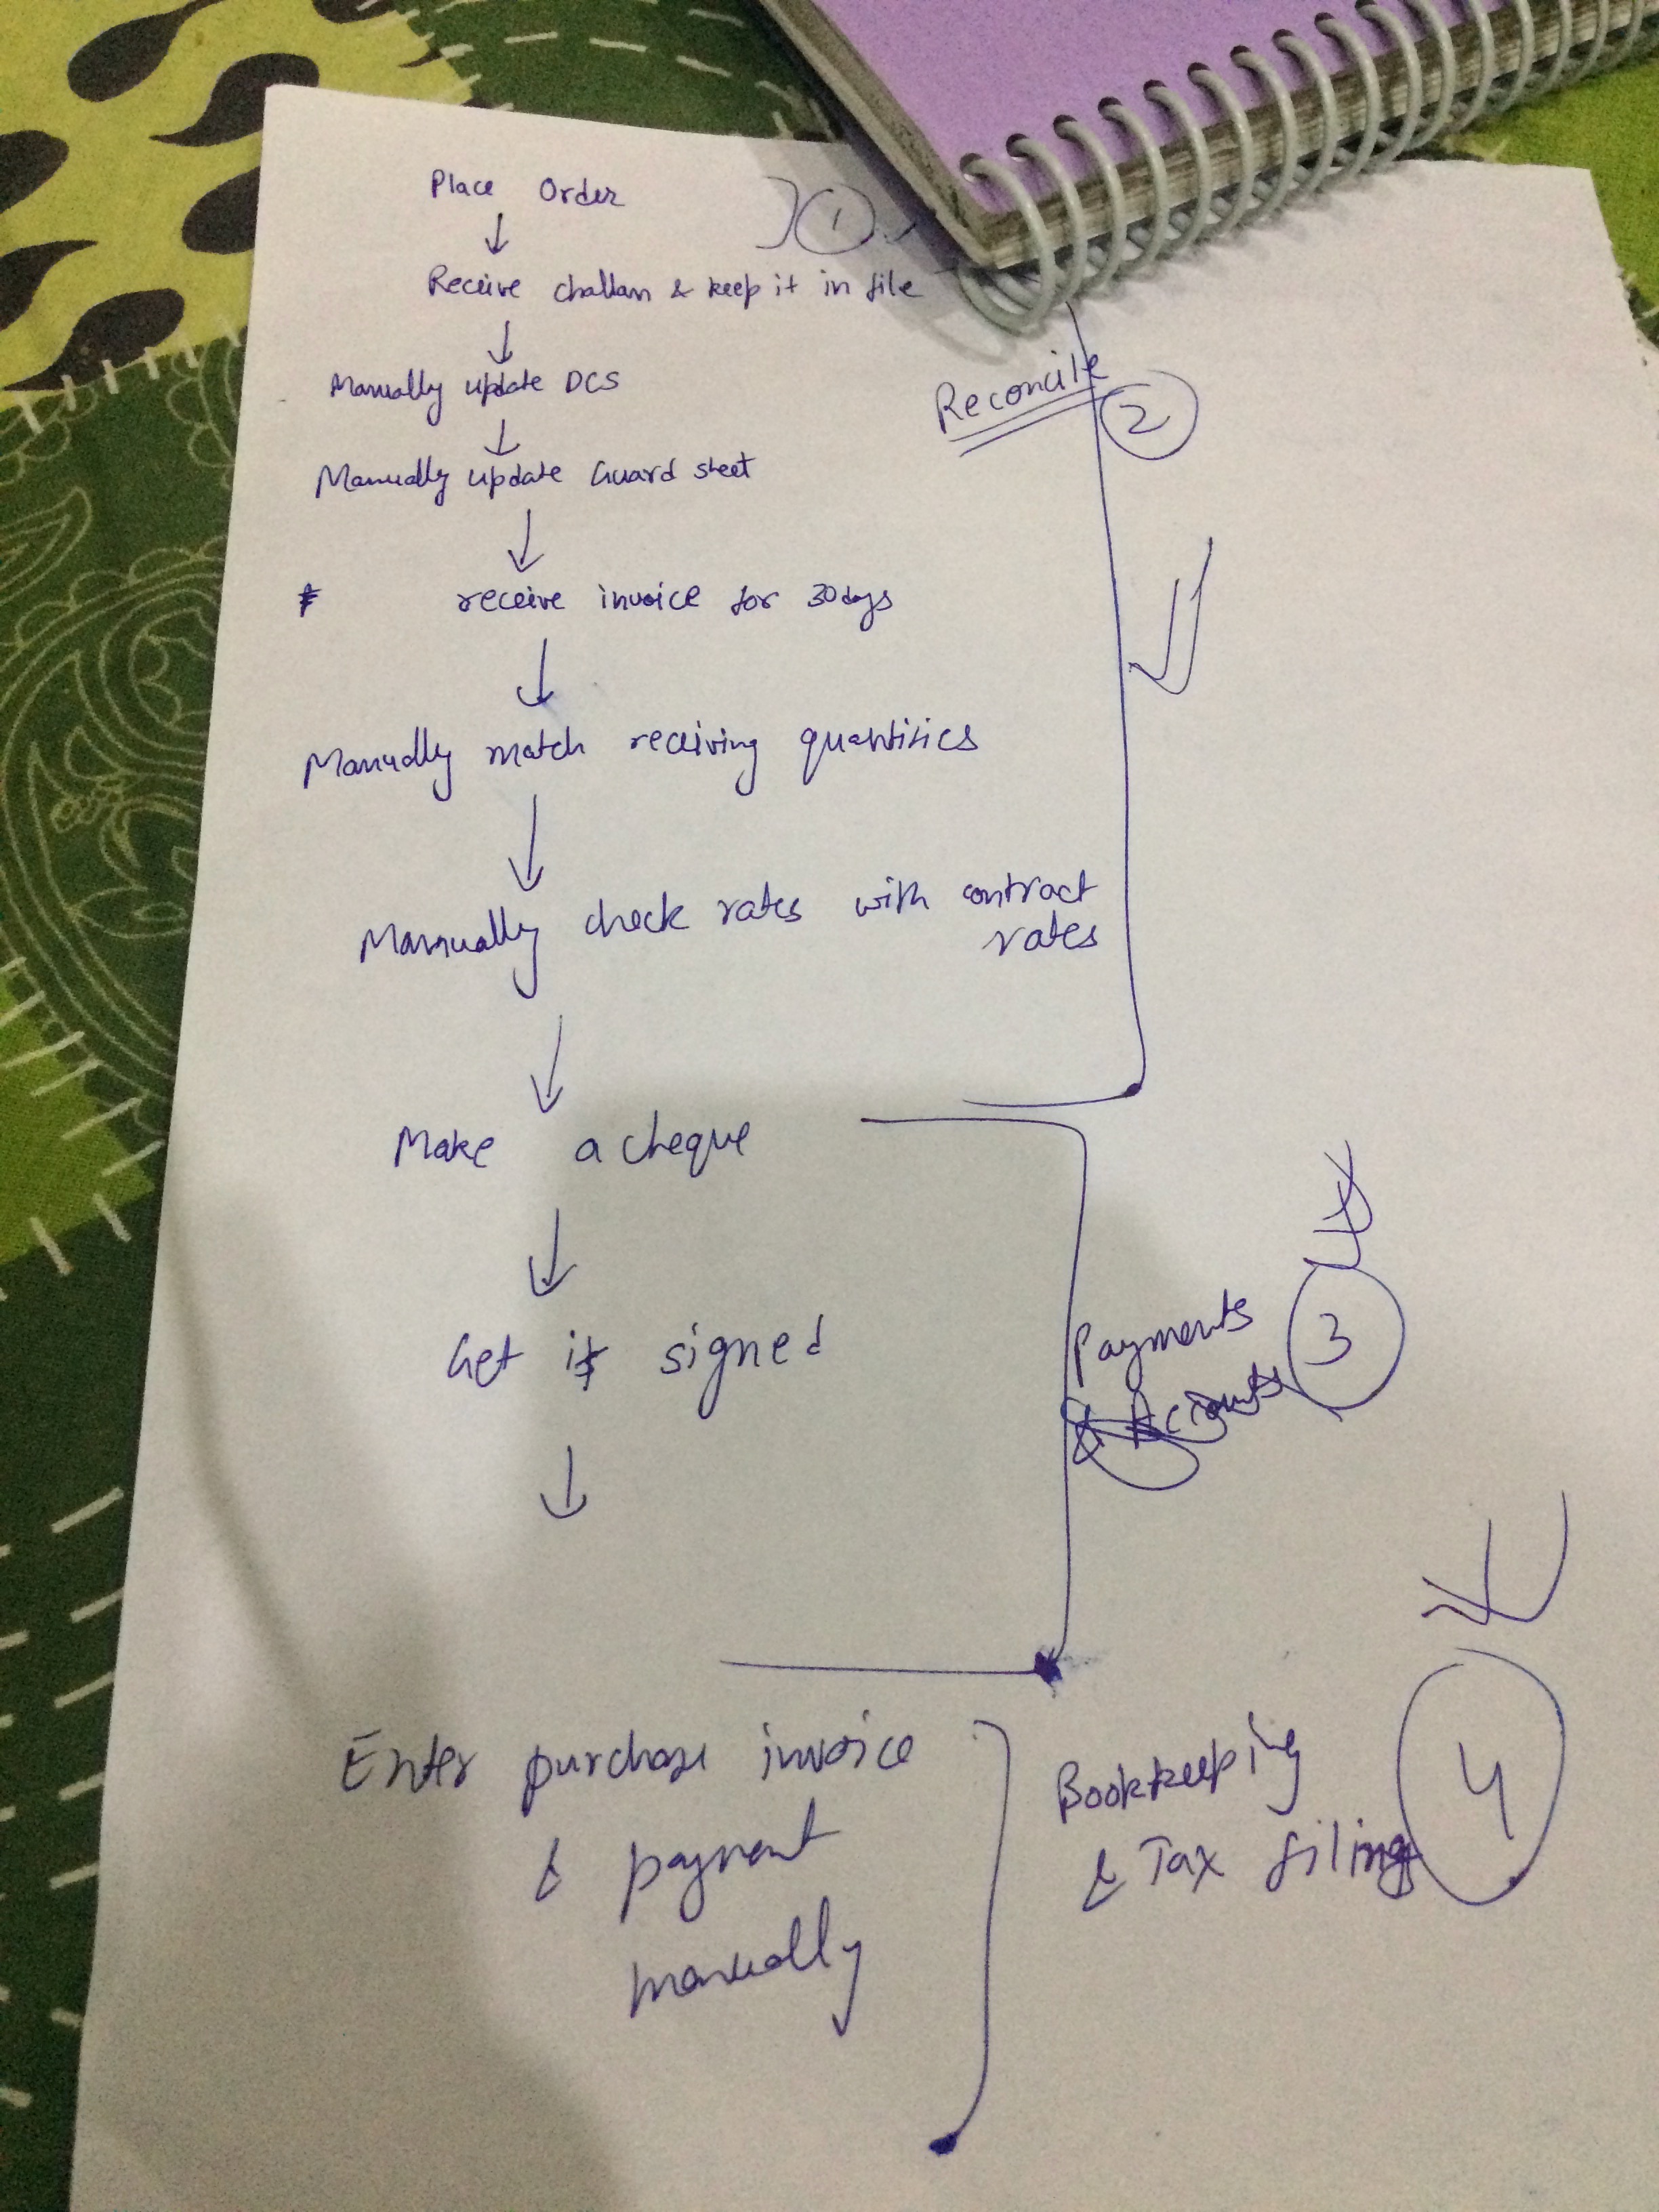 Place Order
1
Receive challan & keep it in file
Manually update DCS
Reconcile
2
Manually update Guard sheet
receive invoice for 30days
Manually match receiving quantities
Manually check rates with contract
rates
Make a cheque
Get it signed
Payments
& Accounts
3
Enter purchase invoice
& payment
manually
Bookkeeping
& Tax filing
4